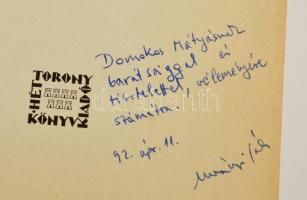 Domokos Mátyásnak
barátsággal és
tisztelettel, véleményére
számítva.
92. ápr. 11.
HÉT TORONY
KÖNYVKIADÓ